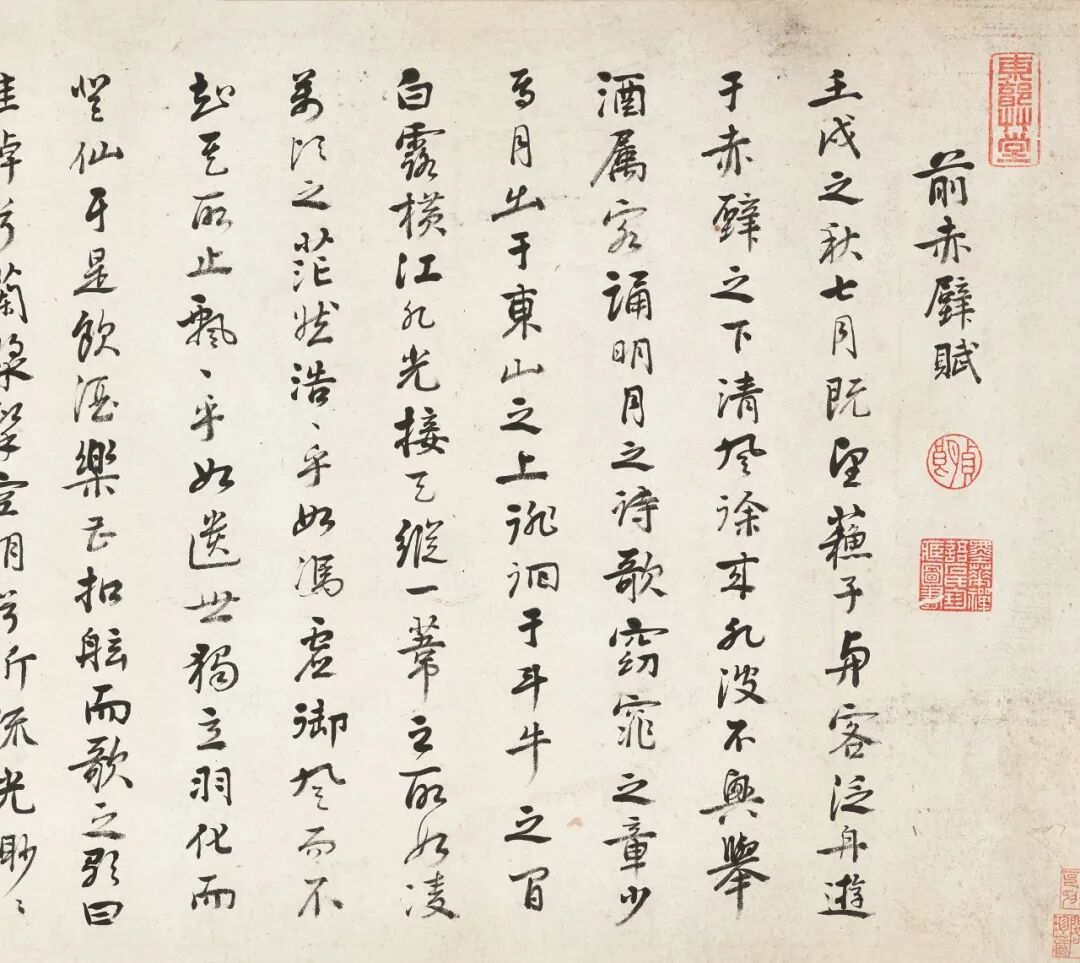 前赤壁賦
壬戌之秋七月既望蘓子與客泛舟遊
于赤壁之下清風徐來水波不興舉
酒屬客誦明月之詩歌窈窕之章少
焉月出于東山之上徘徊于斗牛之間
白露橫江水光接天縱一葦之所如凌
萬頃之茫然浩〻乎如馮虛御風而不
知其所止飄〻乎如遺世獨立羽化而
登仙于是飲酒樂甚扣舷而歌之歌曰
桂棹兮蘭槳擊空明兮泝流光渺〻